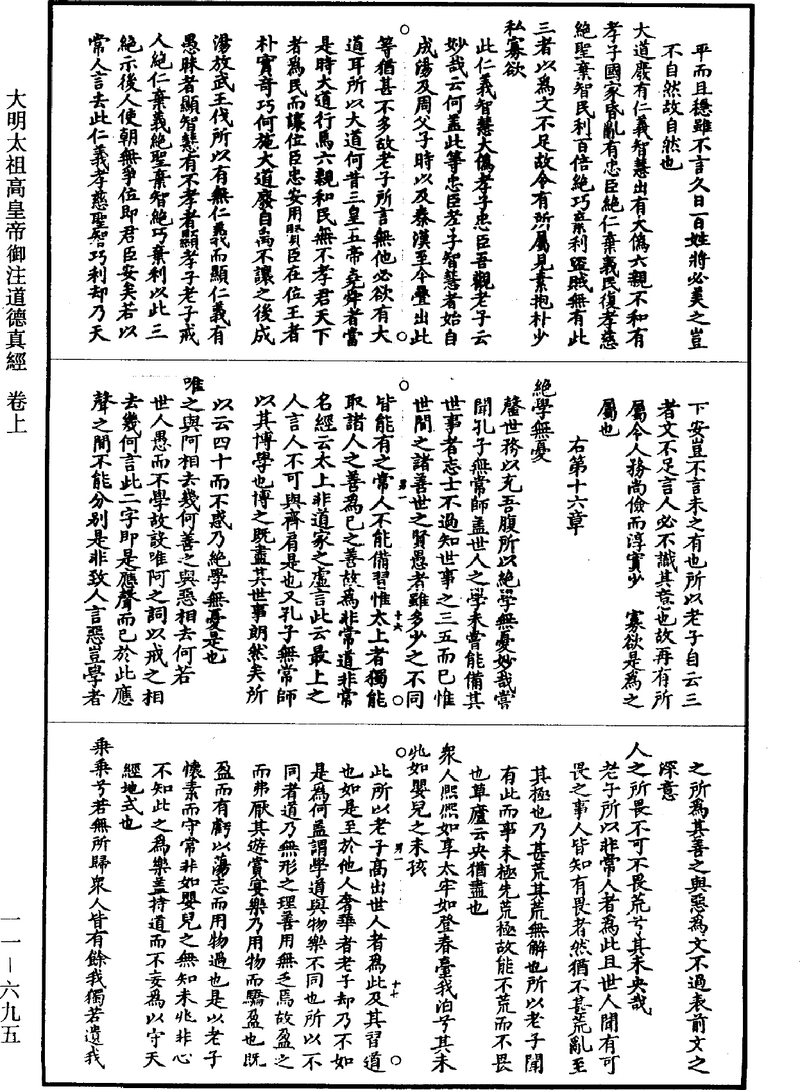 大明太祖高皇帝御注道德真經　卷上
一一—六九五
平而且穩雖不言久日百姓將必美之豈
不自然故自然也
大道廢有仁義智慧出有大偽六親不和有
孝子國家昏亂有忠臣絕仁棄義民復孝慈
絕聖棄智民利百倍絕巧棄利盜賊無有此
三者以為文不足故令有所屬見素抱朴少
私寡欲
此仁義智慧大偽孝子忠臣吾觀老子云
妙哉云何盖此等忠臣孝子智慧者始自
成湯及周父子時以及秦漢至今疊出此
等猶甚不多故老子所言無他必欲有大
道耳所以大道何昔三皇五帝堯舜者當
是時大道行焉六親和民無不孝君天下
者為民而讓位臣忠安用賢臣在位王者
朴實奇巧何施大道廢自禹不讓之後成
湯放武王伐所以有無仁義而顯仁義有
愚昧者顯智慧有不孝者顯孝子老子戒
人絕仁棄義絕聖棄智絕巧棄利以此三
絕示後人使朝無爭位即君臣安矣若以
常人言去此仁義孝慈聖智巧利却乃天
下安豈不言未之有也所以老子自云三
者文不足言人必不識其意也故再有所
屬令人務尚儉而淳實少　寡欲是為之
屬也
右第十六章
絕學無憂
罄世務以充吾腹所以絕學無憂妙哉嘗
聞孔子無常師盖世人之學未嘗能備其
世事者志士不過知世事之三五而已惟
世間之諸善世之賢愚者雖多少之不同
皆能有之常人不能備習惟太上者獨能
取諸人之善為已之善故為非常道非常
名經云太上非道家之虛言此云最上之
人言人不可與齊肩是也又孔子無常師
以其博學也博之既盡其世事朗然矣所
以云四十而不惑乃絕學無憂是也
唯之與阿相去幾何善之與惡相去何若
世人愚而不學故設唯阿之詞以戒之相
去幾何言此二字即是應聲而已於此應
聲之間不能分别是非致人言惡豈學者
之所為其善之與惡為文不過表前文之
深意
人之所畏不可不畏荒兮其未央哉
老子所以非常人者為此且世人聞有可
畏之事人皆知有畏者然猶不甚荒亂至
其極也乃甚荒其荒無解也所以老子聞
有此而事未極先荒極故能不荒而不畏
也草廬云央猶盡也
衆人熙熙如享太牢如登春臺我泊兮其未
兆如嬰兒之未孩
此所以老子高出世人者為此及其習道
也如是至於他人奢華者老子却乃不如
是為何盖謂學道與物樂不同也所以不
同者道乃無形之理善用無乏焉故盈之
而弗厭其遊賞宴樂乃用物而驕盈也既
盈而有虧以蕩志而用物過也是以老子
懷素而守常非如嬰兒之無知未兆非心
不知此之為樂盖持道而不妄為以守天
經地式也
乘乘兮若無所歸衆人皆有餘我獨若遺我